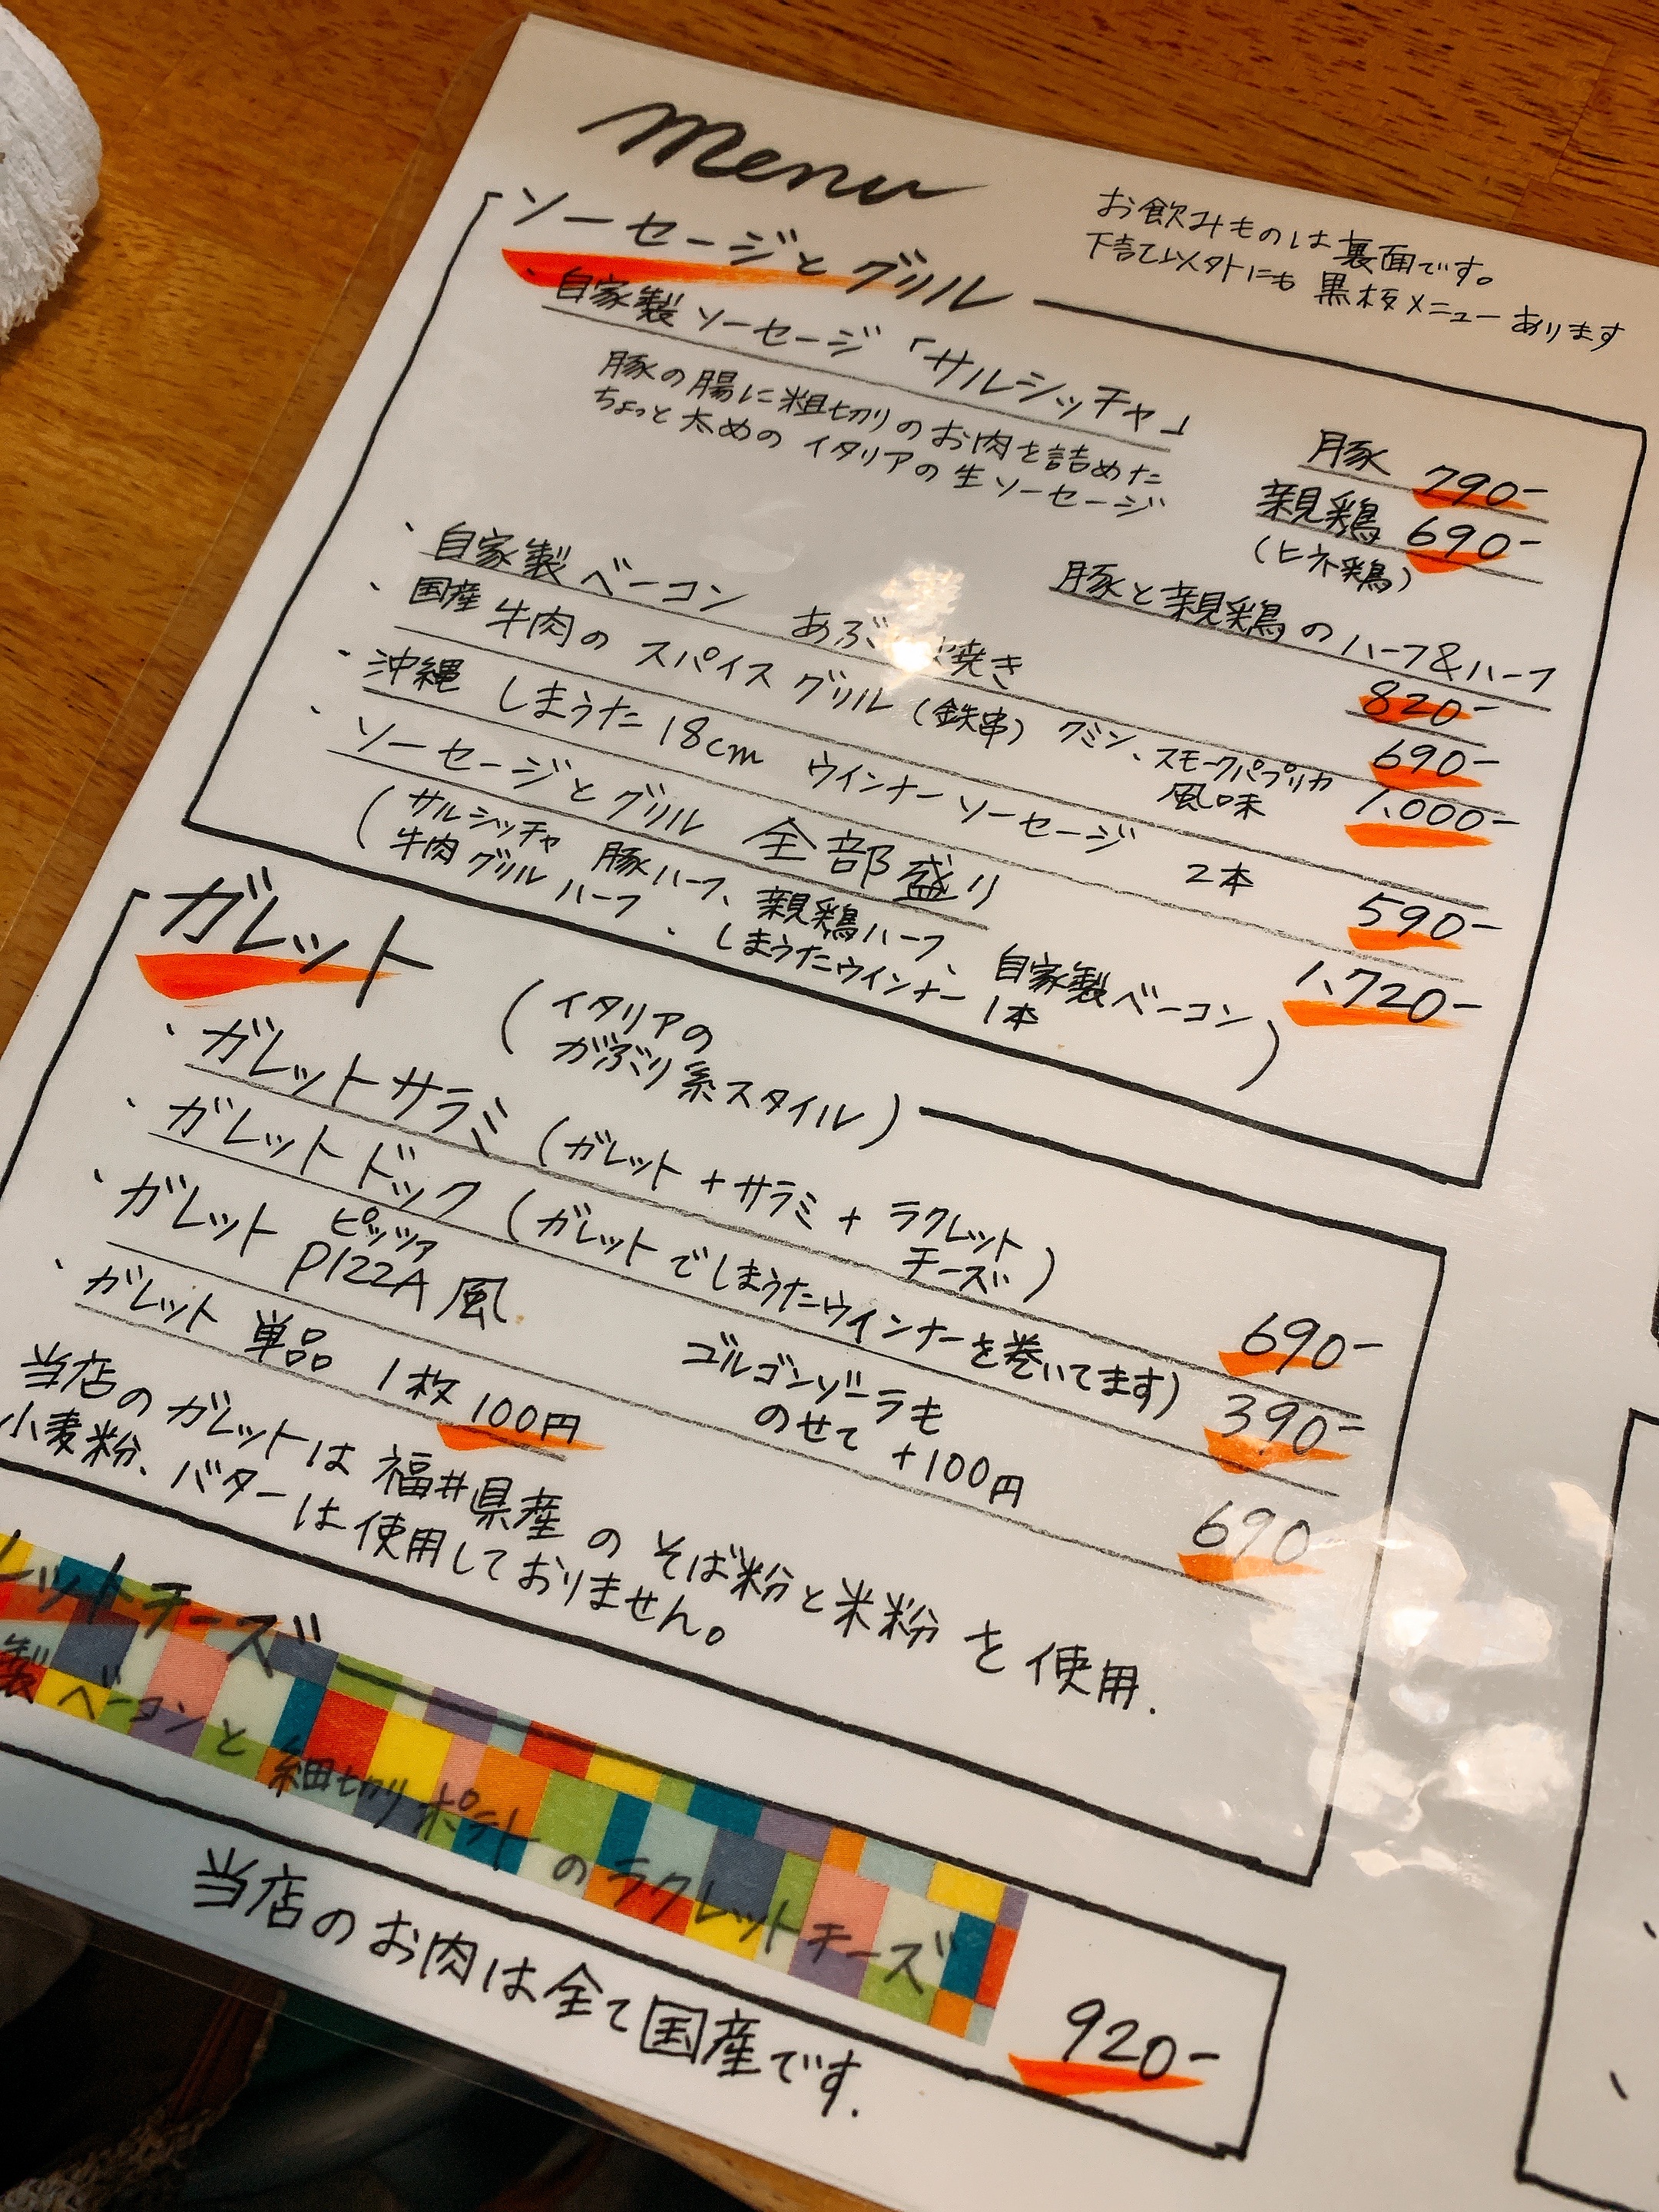 menu
お飲みものは裏面です。
下記以外にも 黒板メニューあります
ソーセージとグリル
・自家製ソーセージ「サルシッチャ」
豚の腸に粗切りのお肉を詰めた
ちょっと太めのイタリアの生ソーセージ
豚 790-
親鶏 690-
(ヒネ鶏)
豚と親鶏のハーフ&ハーフ
820-
・自家製ベーコン あぶり焼き 690-
・国産牛肉のスパイスグリル(鉄串) クミン、スモークパプリカ
風味 1,000-
・沖縄 しまうた18cm ウインナーソーセージ 2本 590-
・ソーセージとグリル 全部盛り 1,720-
(サルシッチャ 豚ハーフ、親鶏ハーフ、自家製ベーコン
牛肉グリルハーフ、しまうたウインナー1本)
ガレット
(イタリアの
がぶり系スタイル)
・ガレットサラミ(ガレット+サラミ+ラクレット
チーズ) 690-
・ガレットドック(ガレットでしまうたウインナーを巻いてます) 390-
ピッツァ
・ガレット PIZZA風 690
ゴルゴンゾーラも
のせて +100円
・ガレット 単品 1枚 100円
当店のガレットは 福井県産のそば粉と米粉を使用.
小麦粉、バターは使用しておりません。
レットチーズ
製ベーコンと細切りポテトのラクレットチーズ
920-
当店のお肉は全て国産です.